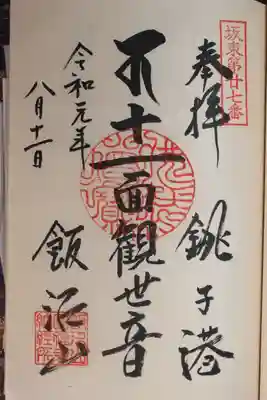 坂東第廿七番
奉拝
銚子港
十一面觀世音
令和元年
八月十一日
飯沼山